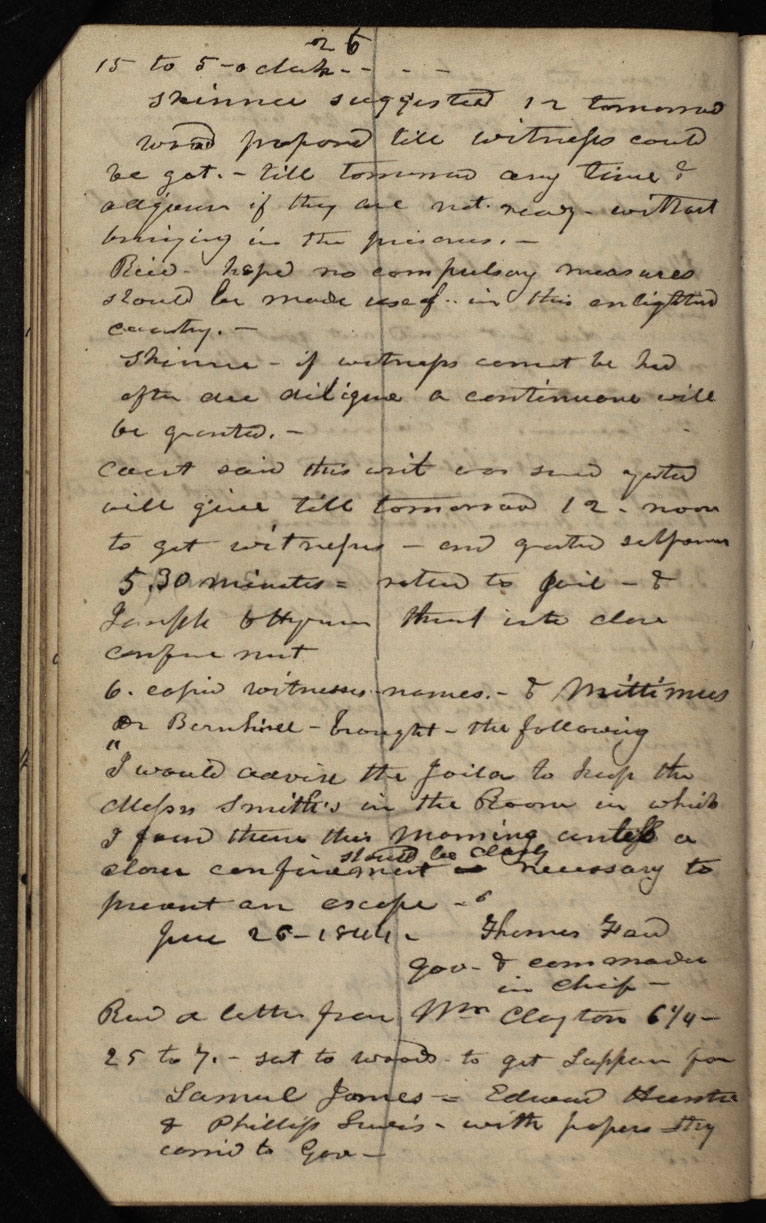 26
15 to 5 - oclock - - - -
Skinner suggested 12 tomorrow
Wood proposed till witness could
be got. - till tomorrow any time &
adjourn if they are not ready - without
bringing in the prisoners. -
Reid - hoped no compulsory measures
should be made use of .. in this enlightned
country. -
Skinner - if witness cannot be had
after due diligence a continuance will
be granted. -
Court said this writ was served yesterd
will give till tomorrow 12 - noon
to get witnesses - and granted subpoenas
5,30 minutes = retired to Jail - &
Joseph & Hyrum thrust into close
confinement
6. copied witnesses names. - & Mittimus
Dr Bernhisel - brought - the following
"I would advise the Jailor to keep the
Messrs Smith's in the Room in which
I found them this morning unless a
closer confinement should be clearly necessary to
prevent an escape -"
June 26 - 1844 - Thomas Ford
Gov - & commander
in Chief -
Recd a letter from Wm Clayton 6 1/4 -
25 to 7. - sat to woods - to get Supper for
Samuel James = Edward Hunter
& Phillip Lewis - with papers they
carrid to Gov -